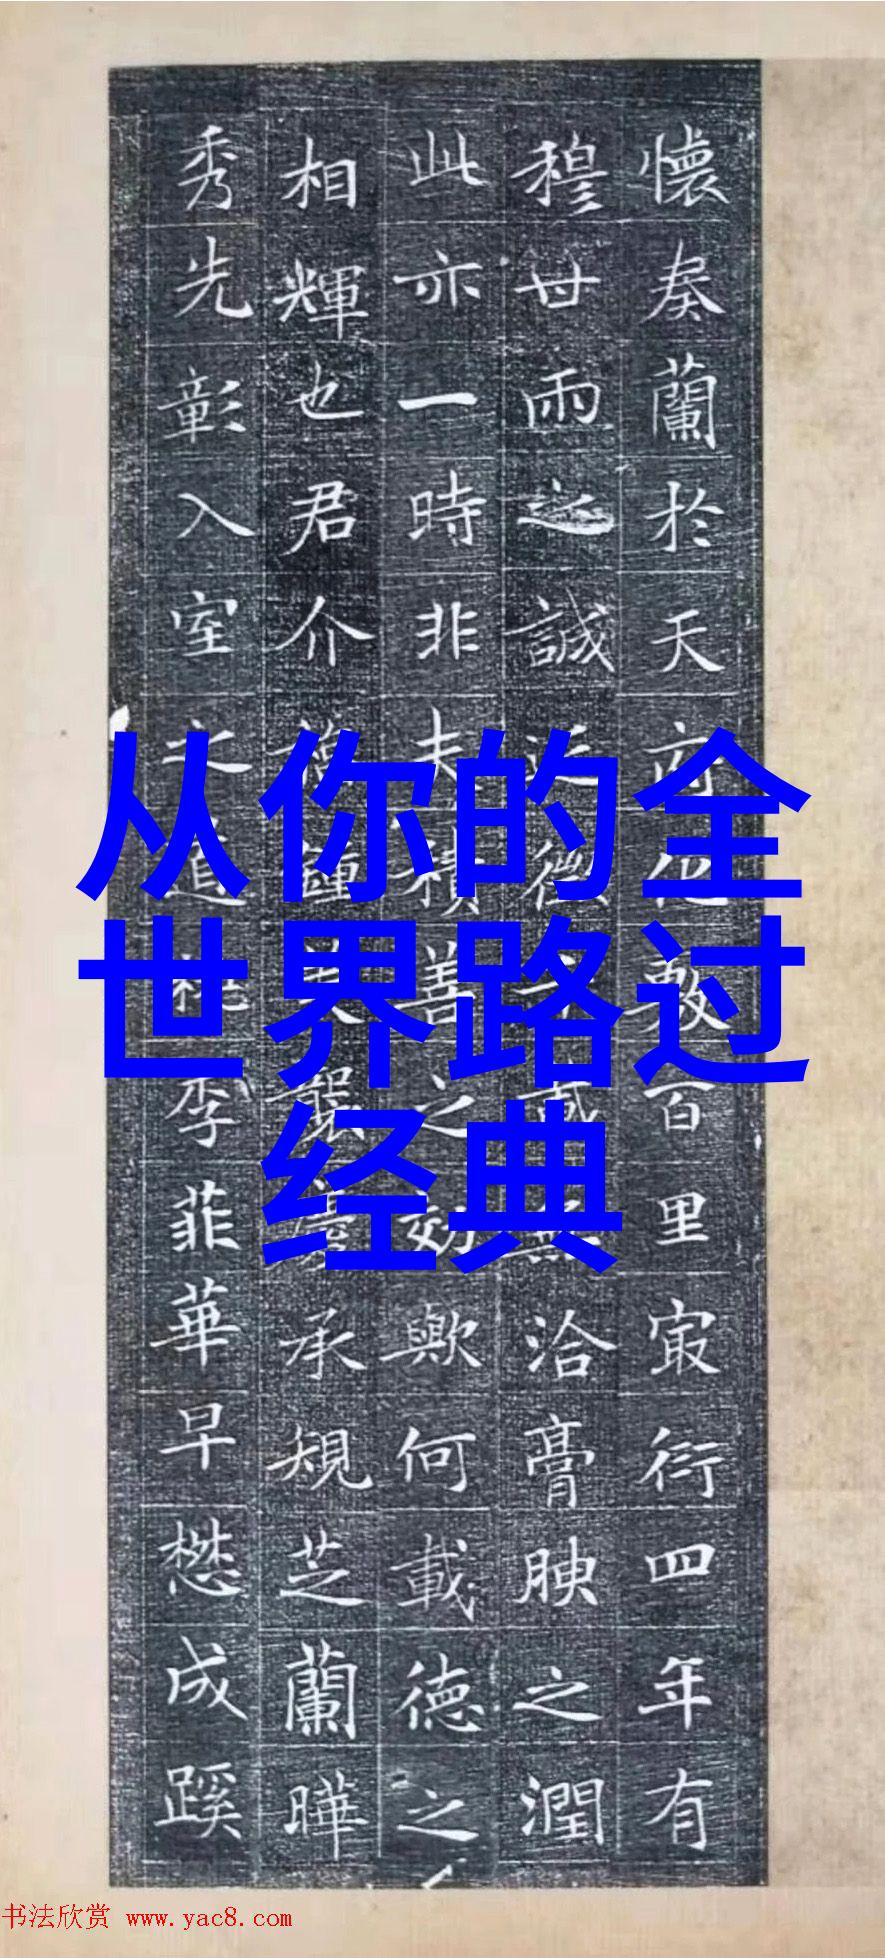 懷奏蘭於天府化敷百里冣衍四年有
穆世雨之誠洽膏腴之潤
此亦一時非夫積善之効歟何載德之
相輝也君介承規芝蘭曄
秀先彰入室之道桃李菲華早懋成蹊
从你的全
世界路过
经典
书法欣赏 www.yac8.com